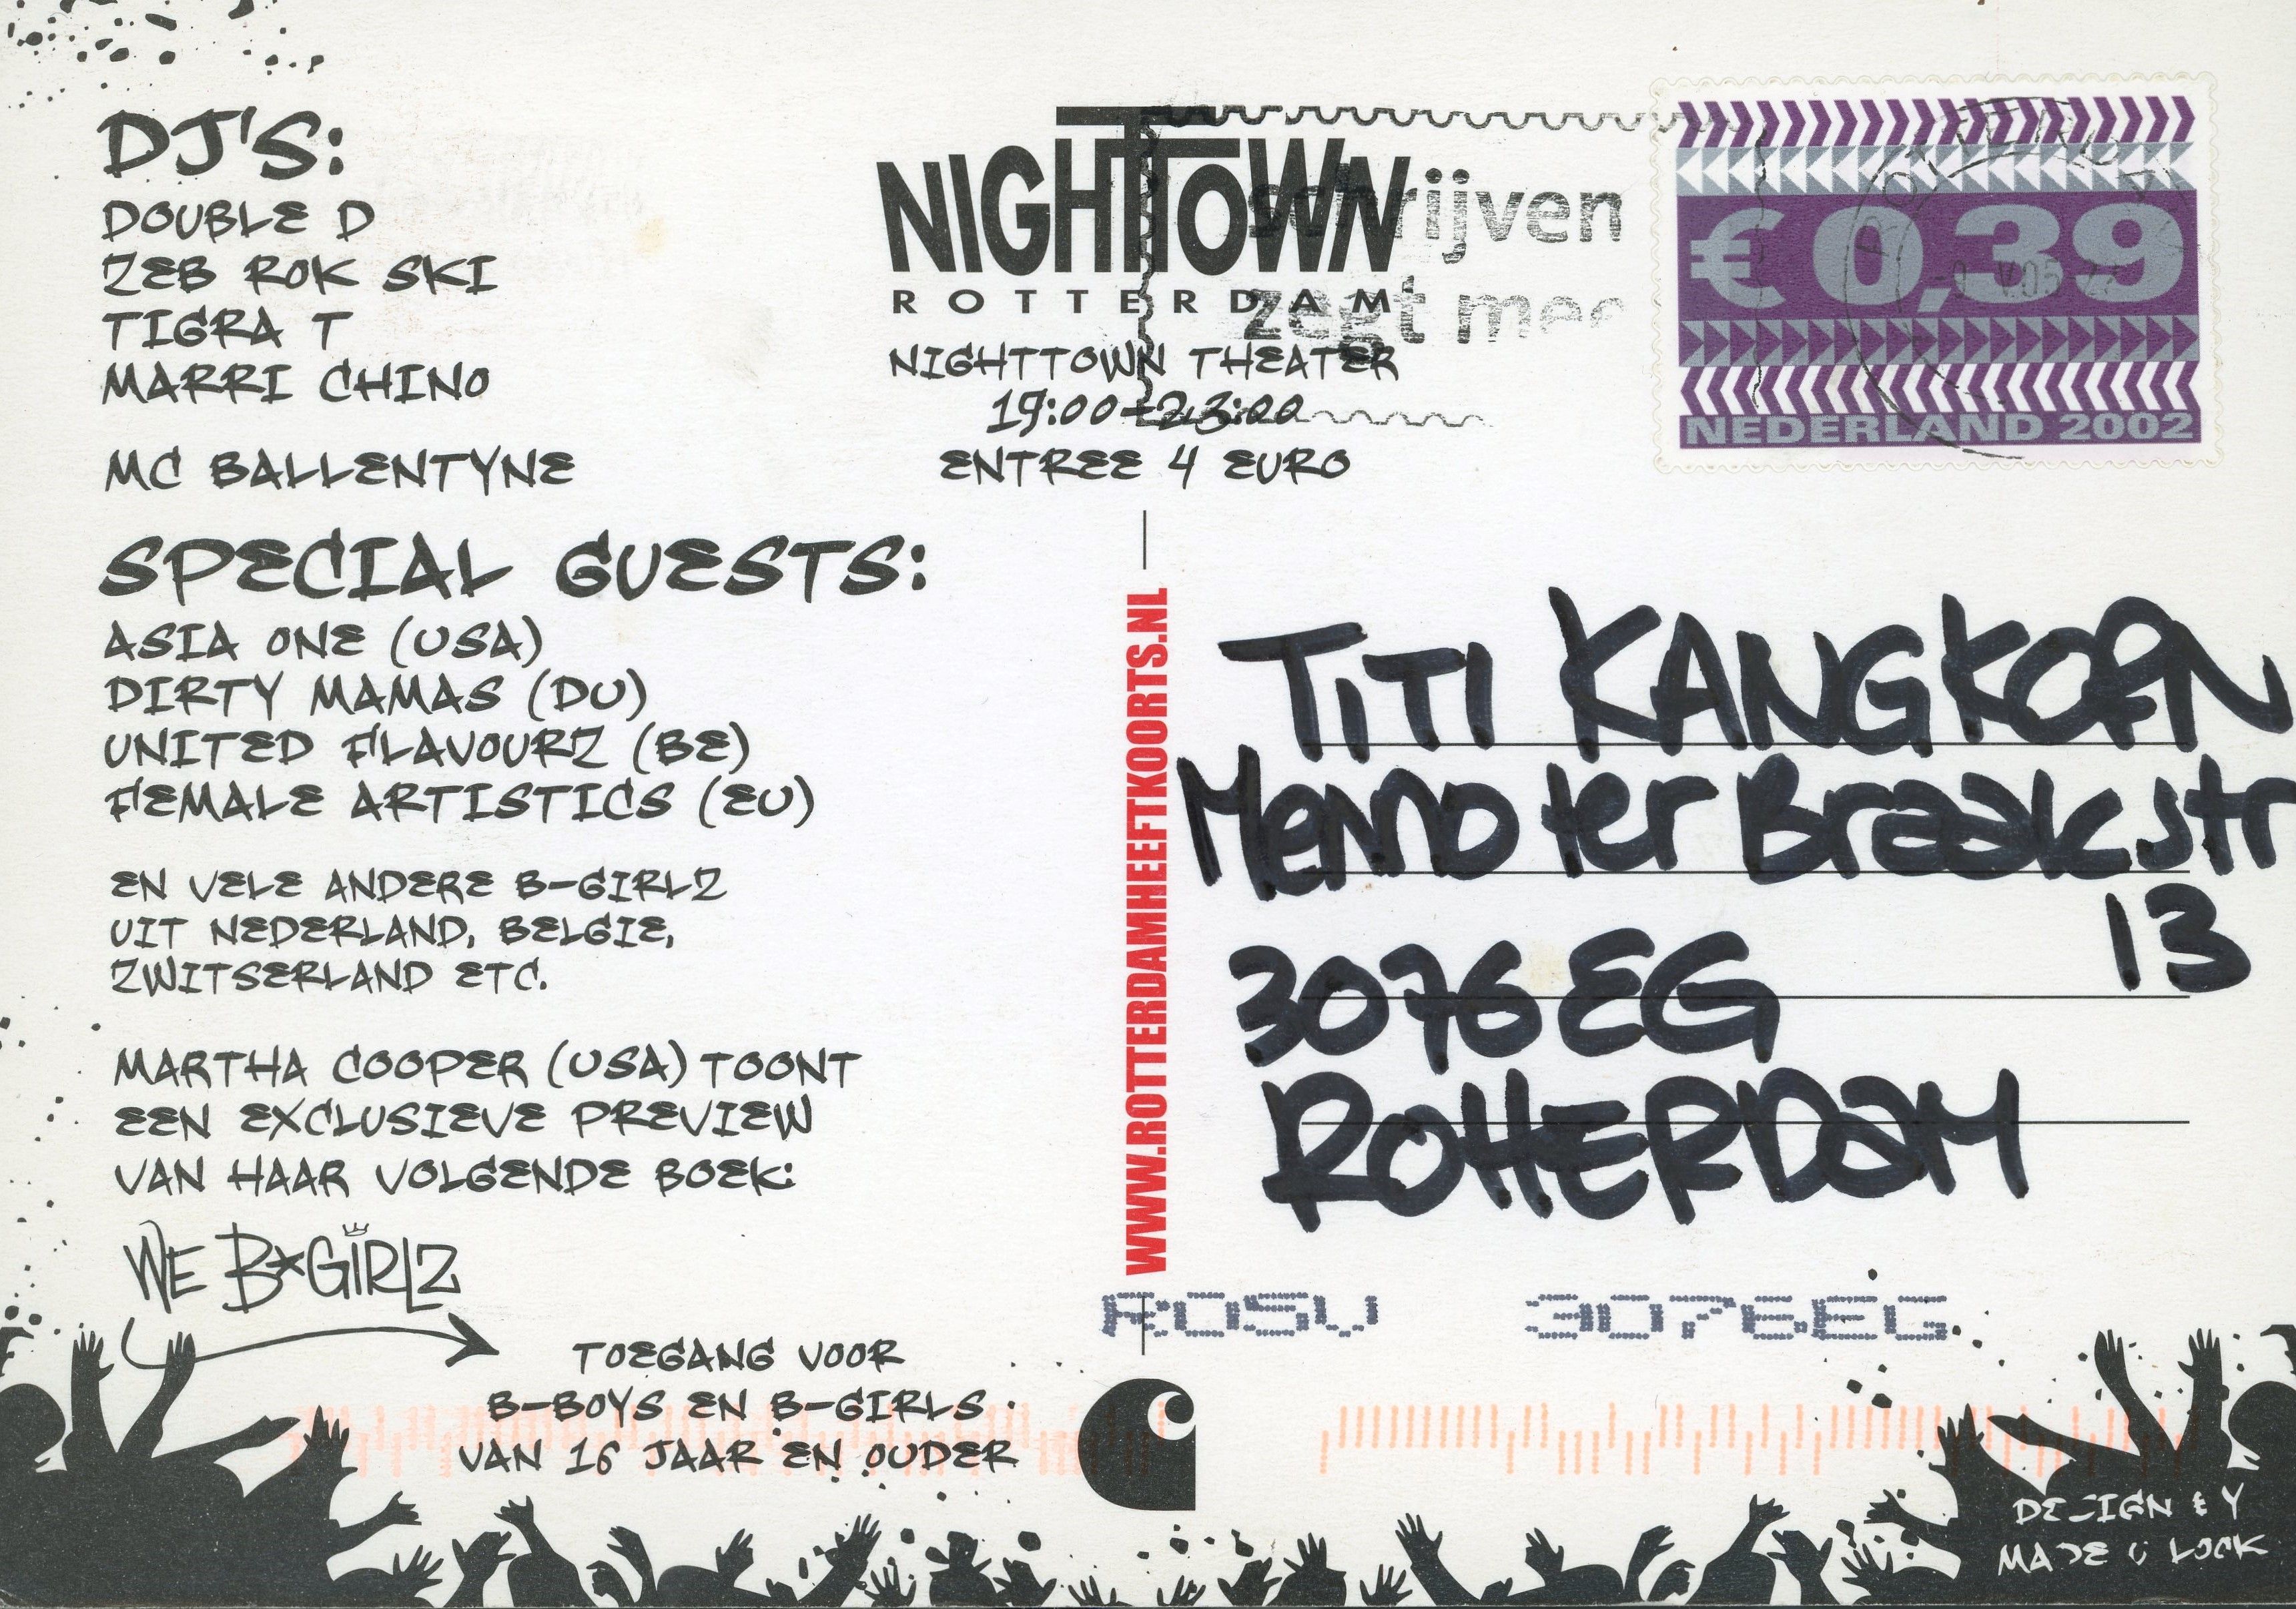 DJ'S:
DOUBLE D
ZEB ROK SKI
TIGRA T
MARRI CHINO
MC BALLENTYNE
SPECIAL GUESTS:
ASIA ONE (USA)
DIRTY MAMAS (DU)
UNITED FLAVOURZ (BE)
FEMALE ARTISTICS (EU)
EN VELE ANDERE B-GIRLZ
UIT NEDERLAND, BELGIE,
ZWITSERLAND ETC.
MARTHA COOPER (USA) TOONT
EEN EXCLUSIEVE PREVIEW
VAN HAAR VOLGENDE BOEK:
WE B*GIRLZ
TOEGANG VOOR
B-BOYS EN B-GIRLS
VAN 16 JAAR EN OUDER
NIGHTTOWN
ROTTERDAM
NIGHTTOWN THEATER
19:00-23:00
ENTREE 4 EURO
schrijven
zegt meer
€ 0,39
NEDERLAND 2002
WWW.ROTTERDAMHEEFTKOORTS.NL
TITI KANGKOEN
Menno ter Braakstr
13
3076 EG
ROTTERDAM
ROSV 3076EG
DESIGN BY
MADE U LOOK